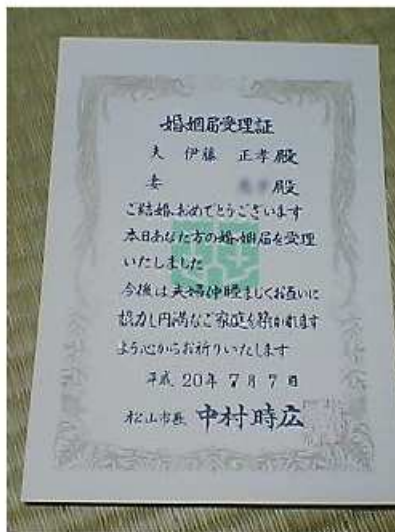 婚姻届受理証
夫 伊藤 正孝 殿
妻 殿
ご結婚おめでとうございます
本日あなた方の婚姻届を受理
いたしました
今後は夫婦仲睦ましくお互いに
協力し円満なご家庭を築かれます
よう心からお祈りいたします
平成 20年 7月 7日
松山市長 中村時広